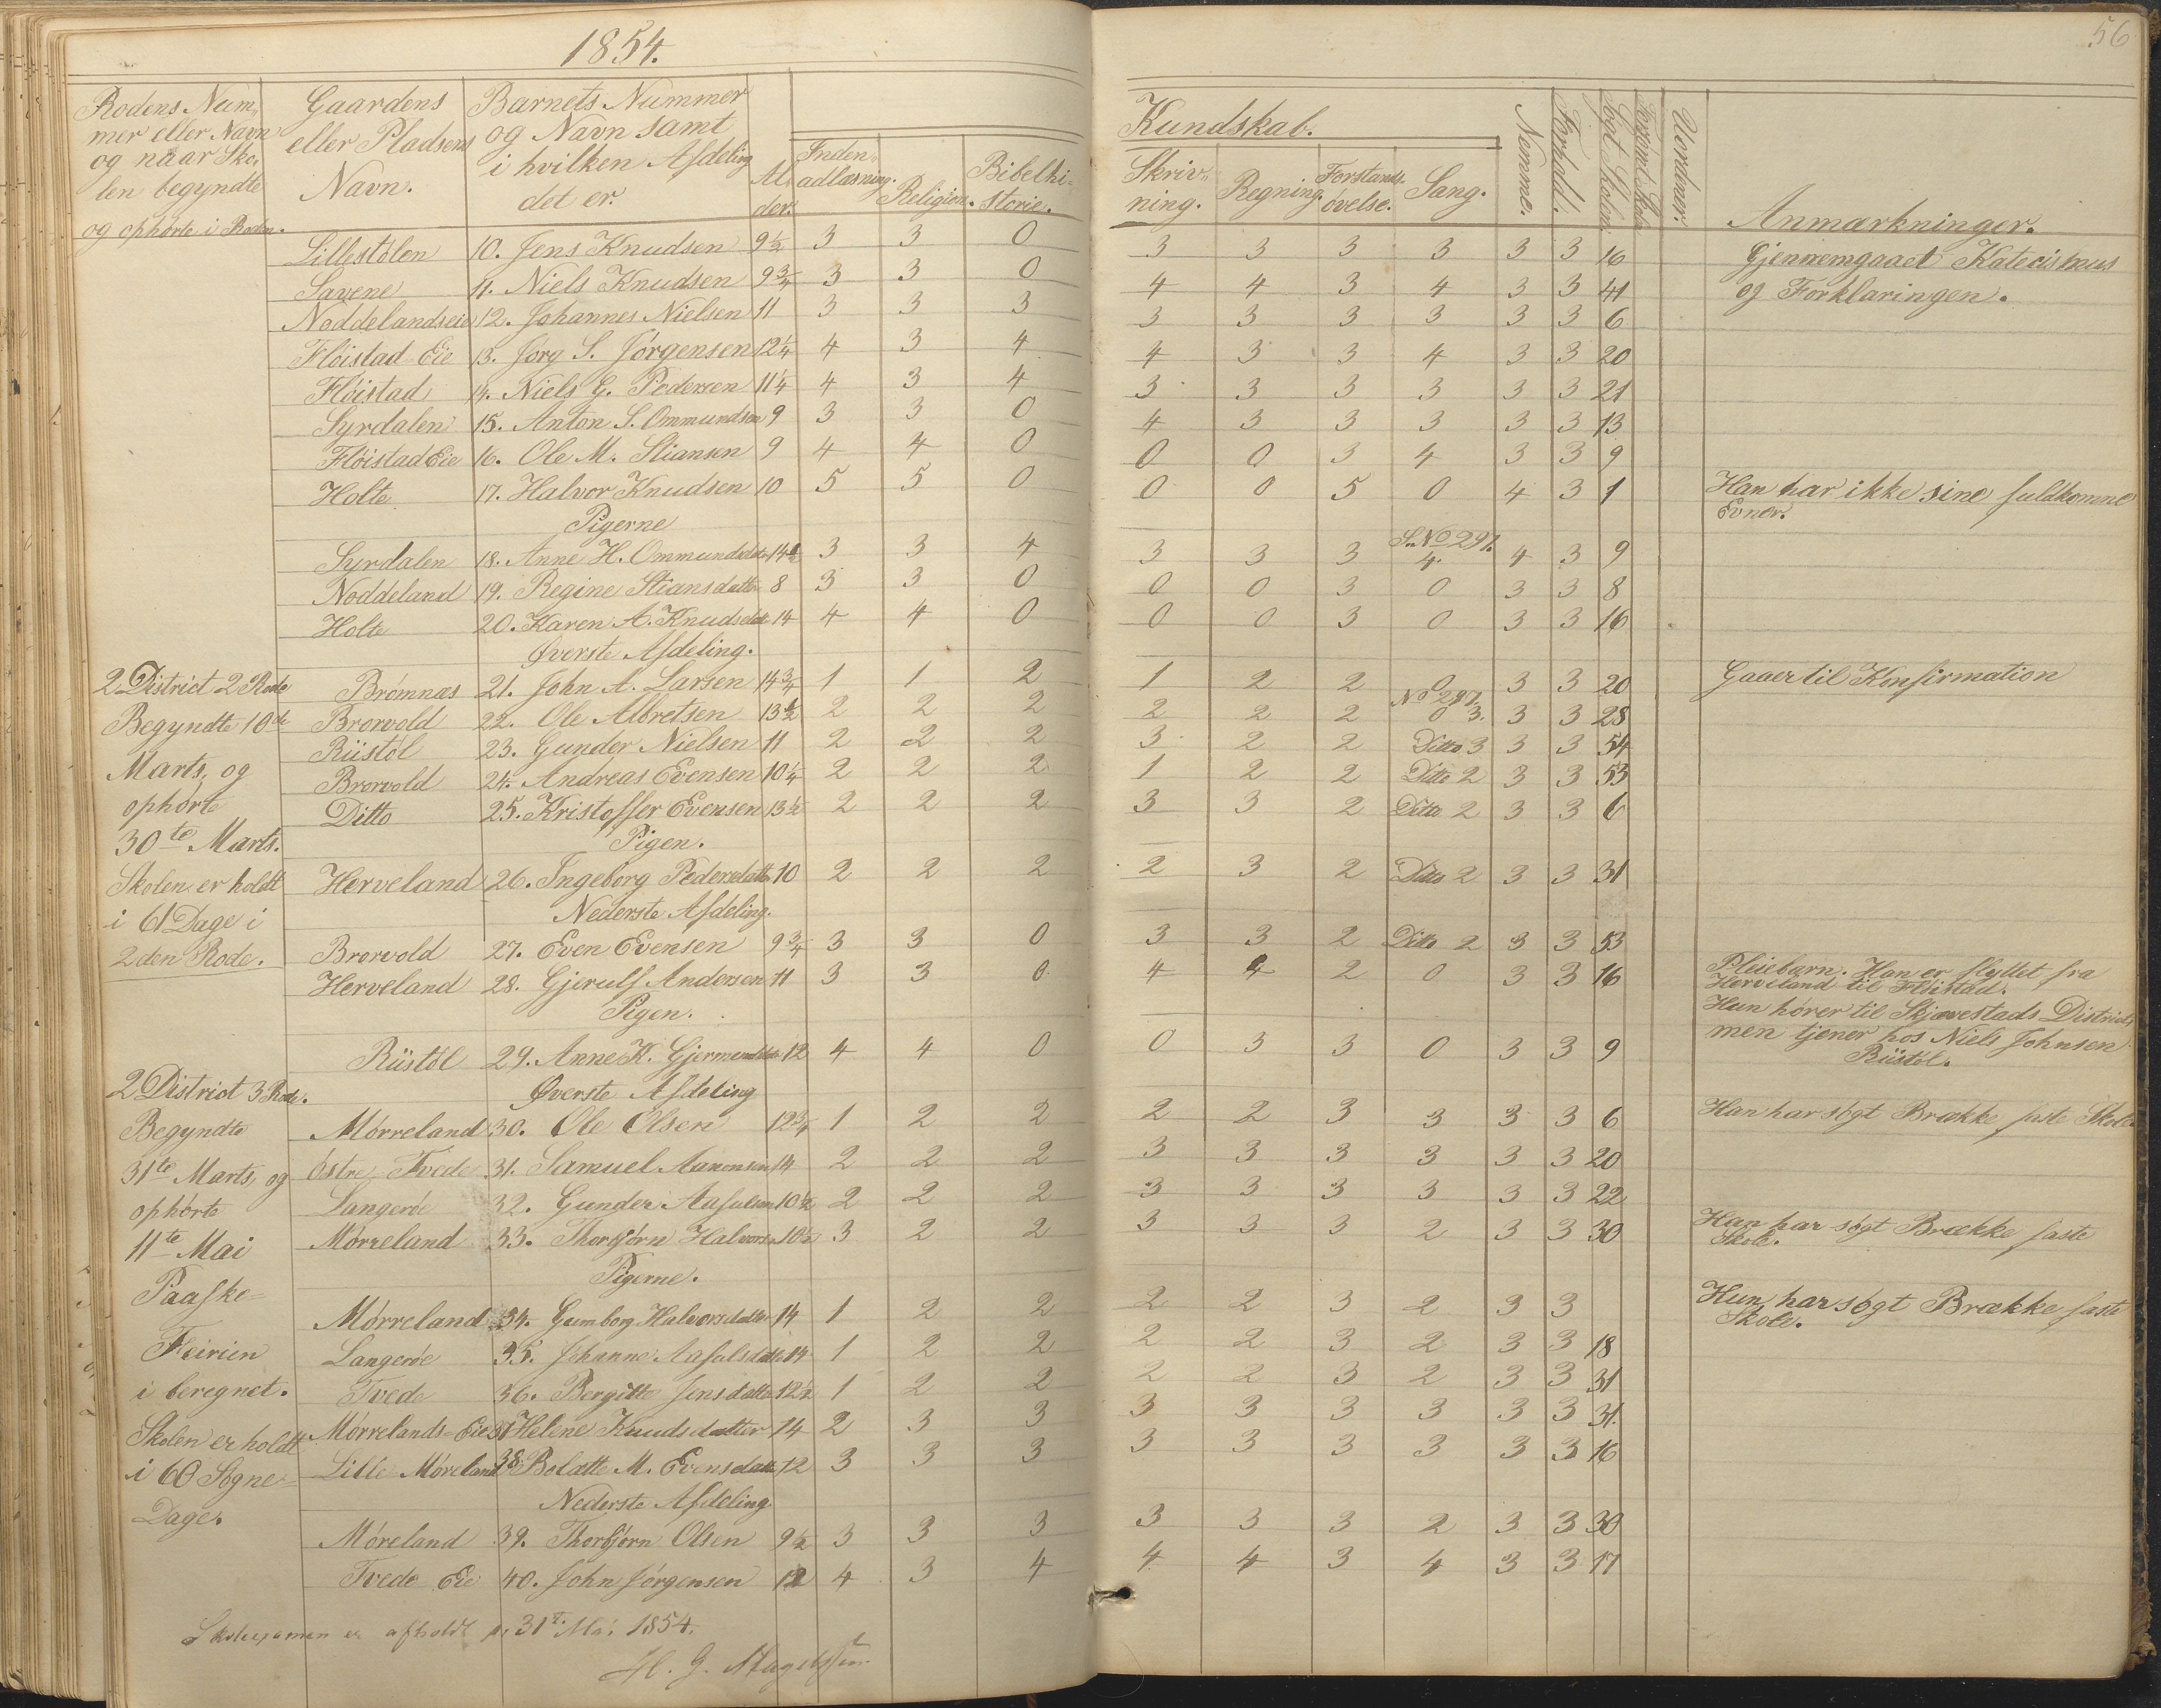 1854.
56
Rodens Num-
mer eller Navn
og naar Sko-
len begyndte
og ophørte i Roden.
Gaardens
eller Pladsens
Navn.
Barnets Nummer
og Navn samt
i hvilken Afdeling
det er.
Al-
der.
Kundskab.
Inden-
adlæsning.
Religion.
Bibelhi-
storie.
Skriv-
ning.
Regning.
Forstands-
øvelse.
Sang.
Nemme.
Forhold.
Søgt Skolen
Forsømt Skolen
Uordener.
Anmærkninger.
Lillestølen 10. Jens Knudsen 9½ 3 3 0 3 3 3 3 3 3 16 Gjennemgaaet Katecismus
Savene 11. Niels Knudsen 9¾ 3 3 0 4 4 3 4 3 3 41 og Forklaringen.
Noddelandseie 12. Johannes Nielsen 11 3 3 3 3 3 3 3 3 3 6
Fløistad Eie 13. Jørg S. Jørgensen 12¼ 4 3 4 4 3 3 4 3 3 20
Fløistad 14. Niels G. Pedersen 11¼ 4 3 4 3 3 3 3 3 3 21
Syrdalen 15. Anton S. Ommundsen 9 3 3 0 4 3 3 3 3 3 13
Fløistad Eie 16. Ole M. Stiansen 9 4 4 0 0 0 3 4 3 3 9
Holte 17. Halvor Knudsen 10 5 5 0 0 0 5 0 4 3 1 Han har ikke sine fuldkomne
Evner.
Pigerne
Syrdalen 18. Anne H. Ommundsdtr 14½ 3 3 4 3 3 3 S. No 297. 4. 4 3 9
Noddeland 19. Regine Stiansdatter 8 3 3 0 0 0 3 0 3 3 8
Holte 20. Karen A. Knudsdatt 14 4 4 0 0 0 3 0 3 3 16
Øverste Afdeling.
2 District 2 Rode
Begyndte 10de
Marts, og
ophørte
30te Marts.
Skolen er holdt
i 61 Dage i
2den Rode.
Brømnæs 21. John A. Larsen 14¾ 1 1 2 1 2 2 0 3 3 20 Gaaer til Konfirmation
Brorvold 22. Ole Albretsen 13½ 2 2 2 2 2 2 No 287. 0 3. 3 3 28
Riistøl 23. Gunder Nielsen 11 2 2 2 3 2 2 Ditto 3 3 3 54
Brorvold 24. Andreas Evensen 10¼ 2 2 2 1 2 2 Ditto 2 3 3 53
Ditto 25. Kristoffer Evensen 13½ 2 2 2 3 3 2 Ditto 2 3 3 6
Pigen.
Herveland 26. Ingeborg Pedersdatt 10 2 2 2 2 3 2 Ditto 2 3 3 31
Nederste Afdeling.
Brorvold 27. Even Evensen 9¾ 3 3 0 3 3 2 Ditto 2 3 3 53
Herveland 28. Gjerulf Andersen 11 3 3 0 4 4 2 0 3 3 16 Pleiebarn. Han er flyttet fra
Herveland til Fløistad.
Pigen.
Riistøl 29. Anne K. Gjermundsdtr 12 4 4 0 0 3 3 0 3 3 9 Hun hører til Skjævestads District
men tjener hos Niels Johnsen
Riistøl.
2 District 3 Rode.
Begyndte
31te Marts, og
ophørte
11te Mai
Paaske-
Feirien
i beregnet.
Skolen er holdt
i 60 Søgne-
Dage.
Øverste Afdeling
Mørreland 30. Ole Olsen 12¾ 1 2 2 2 2 3 3 3 3 6 Han har søgt Brække faste Skole
Østre Tvede 31. Samuel Aanonsen 14 2 2 2 3 3 3 3 3 3 20
Langerøe 32. Gunder Aasulsen 10½ 2 2 2 3 3 3 3 3 3 22
Mørreland 33. Thorbjørn Halvorsn 10½ 3 2 2 3 3 3 2 3 3 30 Han har søgt Brække faste
Skole.
Pigerne.
Mørreland 34. Gumborg Halvorsdatter 14 1 2 2 2 2 3 2 3 3 Hun har søgt Brække faste
Skole.
Langerøe 35. Johanne Aasulsdatt 14 1 2 2 2 2 3 2 3 3 18
Tvede 36. Bergitte Jensdatter 12½ 1 2 2 2 2 3 2 3 3 31
Mørrelands-Eie 37 Helene Knudsdatter 14 2 3 3 3 3 3 3 3 3 31.
Lille Møreland 38 Bolatte M. Evensdatt 12 3 3 3 3 3 3 3 3 3 16
Nederste Afdeling
Møreland 39. Thorbjørn Olsen 9½ 3 3 3 3 3 3 2 3 3 30
Tvede Eie 40. John Jørgensen 12 4 3 4 4 4 3 4 3 3 17
Skolexamen er afholdt p. 31t Mai 1854.
H. G.